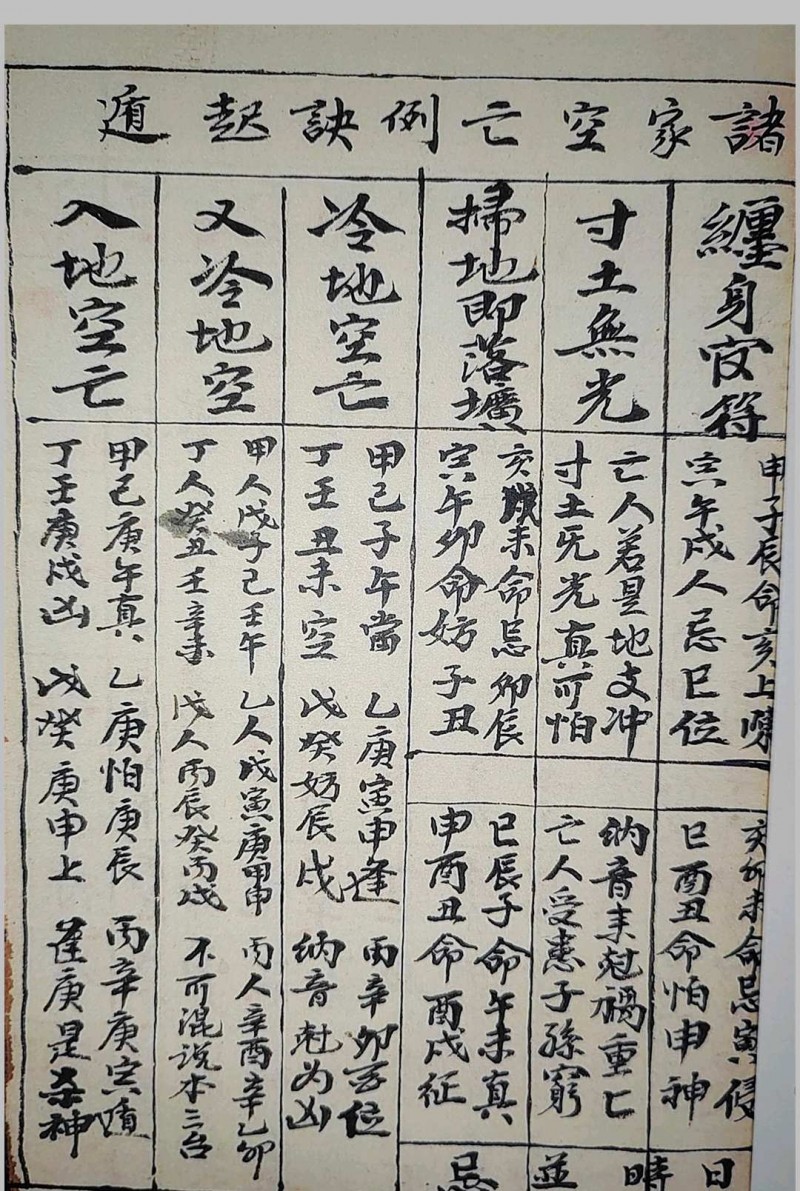 諸家空亡例訣起遁
纏身官符
申子辰命亥上
寅午戌人忌巳位
亥卯未命忌寅侵
巳酉丑命怕申神
寸土無光
亡人若是地支冲
寸土旡光真可怕
纳音来尅禍重亡
亡人受患子孫窮
掃地即落壙
亥 未命忌卯辰
寅午卯命妨子丑
巳辰子命午未真
申酉丑命酉戌征
日時並忌
冷地空亡
甲己子午當
丁壬丑未空
乙庚寅申逢
戊癸妨辰戌
丙辛卯酉位
纳音尅为凶
又冷地空
甲人戊子己壬午
丁人癸丑壬辛未
乙人戊寅庚甲申
戊人丙辰癸丙戌
丙人辛酉辛乙卯
不可混説本三台
入地空亡
甲己庚午真
丁壬庚戌凶
乙庚怕庚辰
戊癸庚申上
丙辛庚寅值
逢庚是杀神